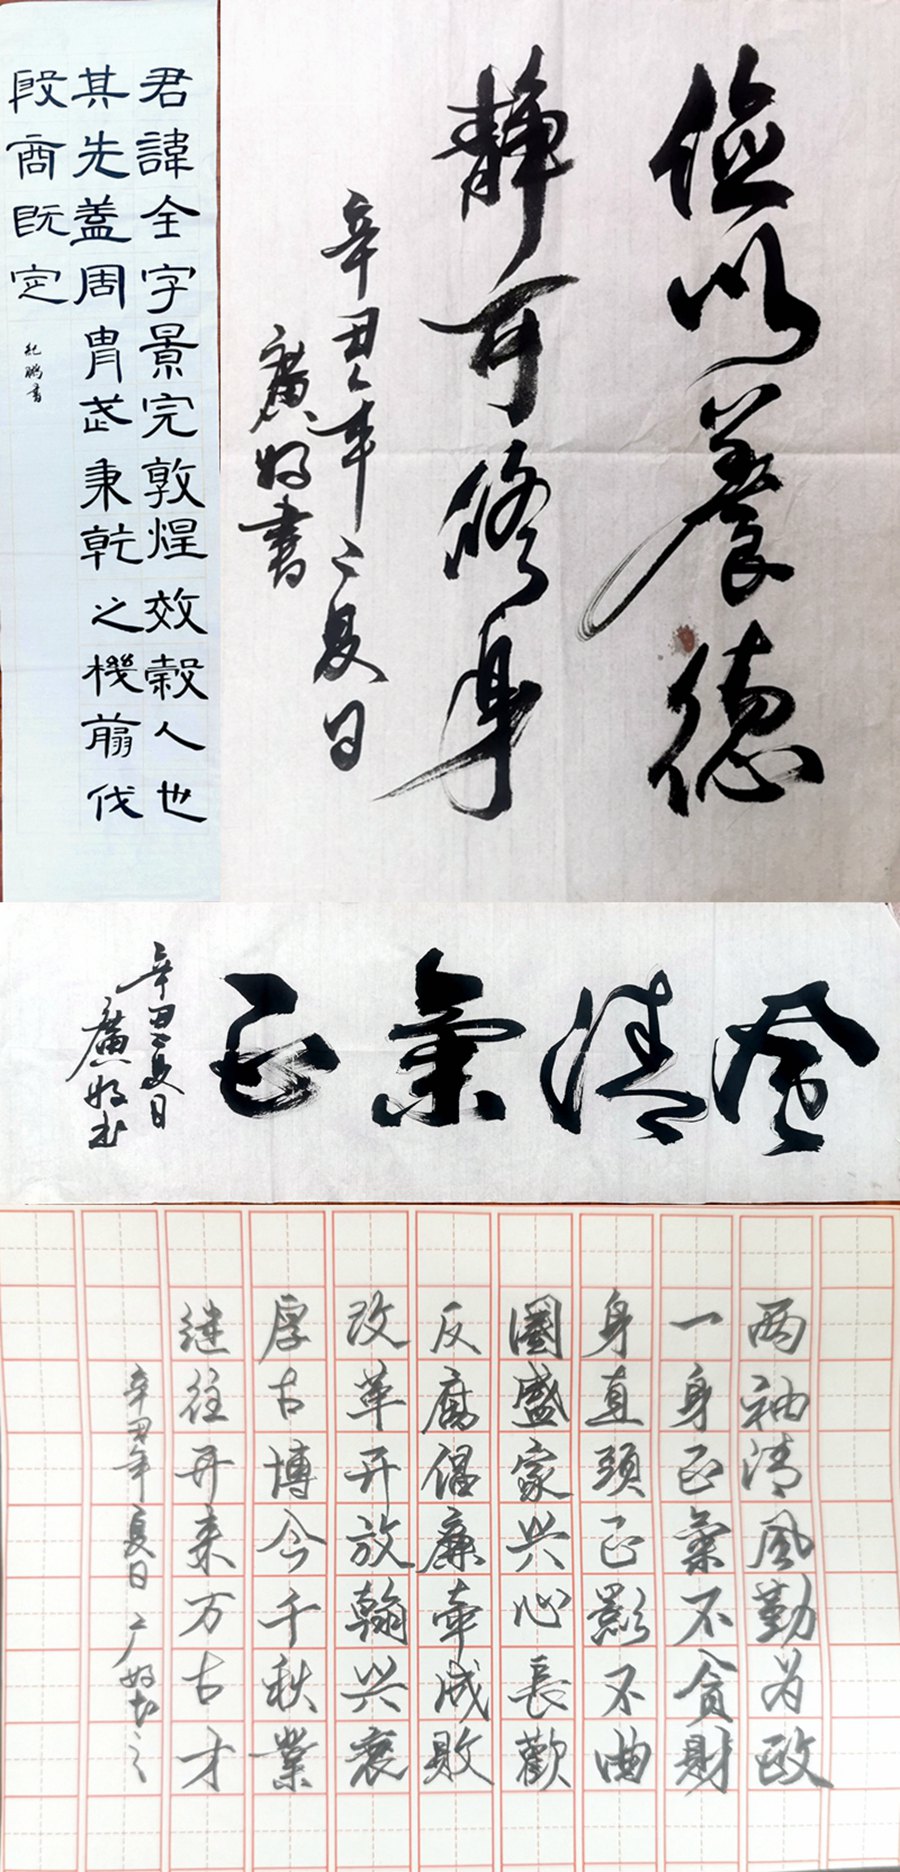 君諱全字景完敦煌效穀人也
其先蓋周胄武秉乾之機翦伐
殷商既定
紀鵬書
儉以養德
靜可修身
辛丑年之夏日
廣好書
風清氣正
辛丑之夏日
廣好书
两袖清風勤为政
一身正氣不貪財
身直頭正影不曲
國盛家兴心長歡
反腐倡廉牽成敗
改革开放翰兴衰
厚古博今千秋業
继往开来万古才
辛丑年夏日广好书之